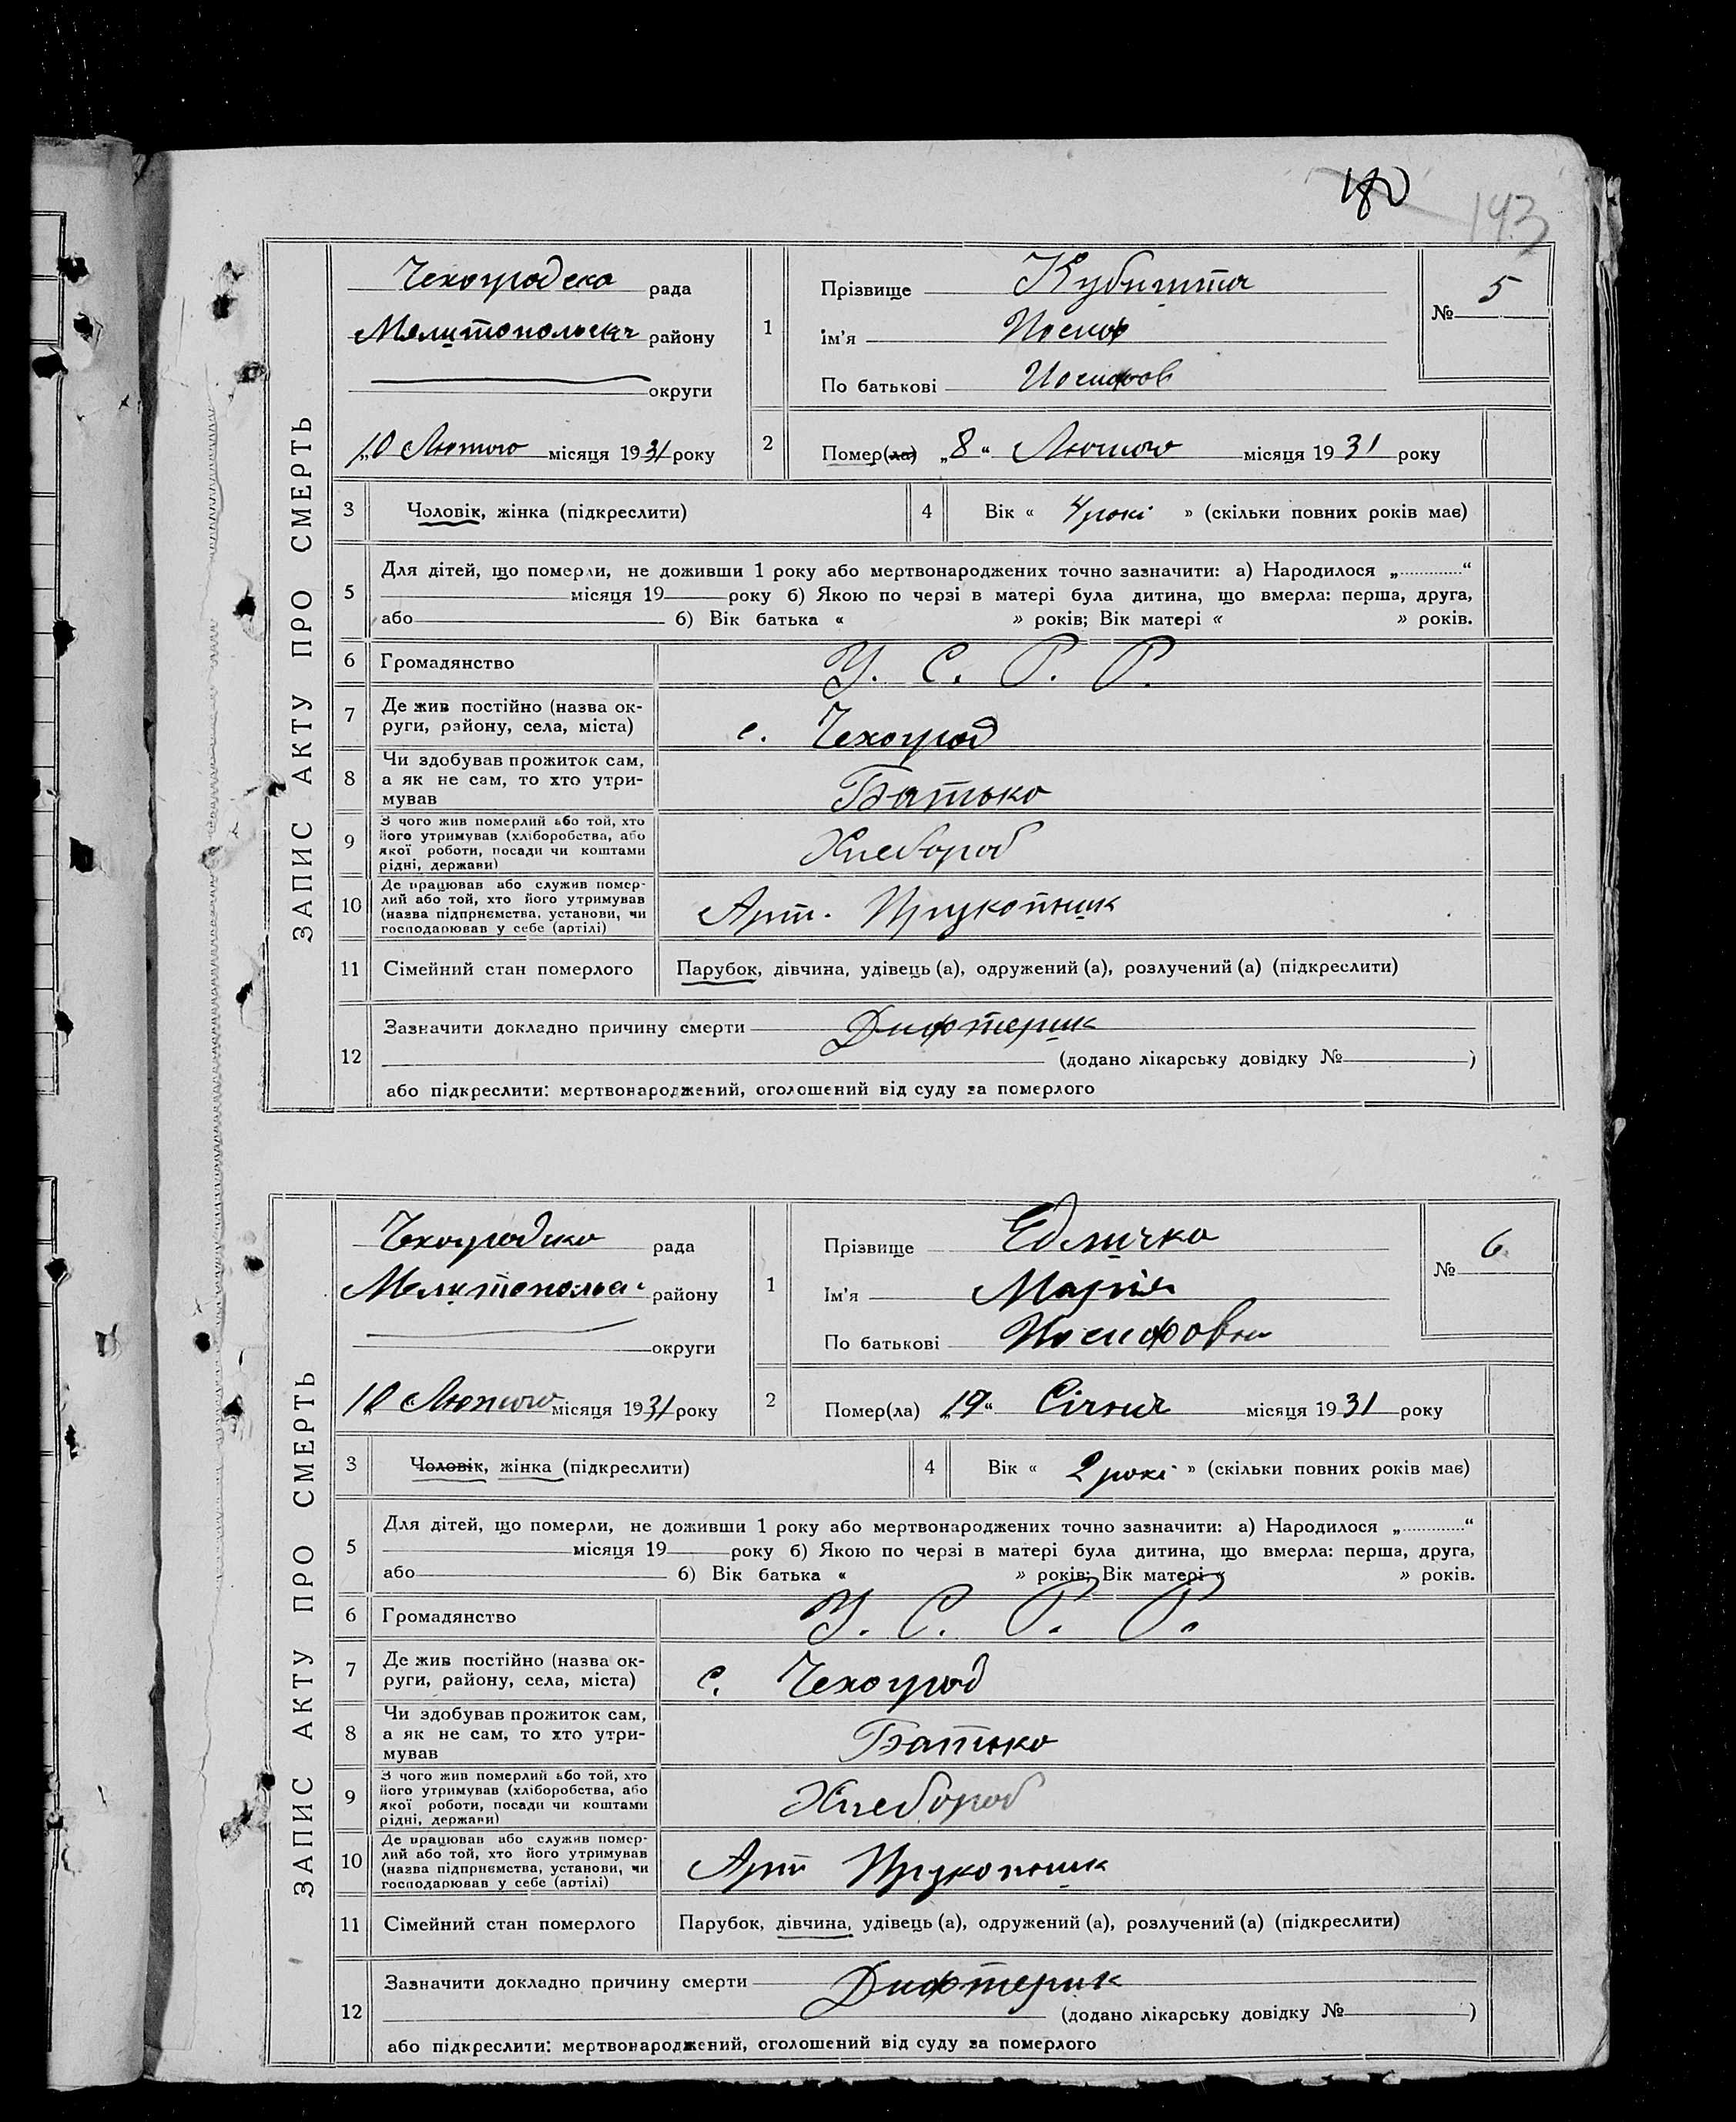 180
193
ЗАПИС АКТУ ПРО СМЕРТЬ
Чехоградска рада
Мелитопольськ району
округи
„10 Лютого місяця 1931 року
1
Прізвище Кубишта
ім'я Иосиф
По батькові Иосифов
№ 5
2
Помер(ла) „8“ Лютого місяця 1931 року
3 Чоловік, жінка (підкреслити)
4 Вік « 4 рокі » (скільки повних років має)
5 Для дітей, що померли, не доживши 1 року або мертвонароджених точно зазначити: а) Народилося „............“
місяця 19 року б) Якою по черзі в матері була дитина, що вмерла: перша, друга,
або б) Вік батька « » років; Вік матері « » років.
6 Громадянство У. С. Р. Р.
7 Де жив постійно (назва ок-
руги, району, села, міста) с. Чехоград
8 Чи здобував прожиток сам,
а як не сам, то хто утри-
мував Батько
9 З чого жив померлий або той, хто
його утримував (хліборобства, або
якої роботи, посади чи коштами
рідні, держави) Хлебороб
10 Де працював або служив помер-
лий або той, хто його утримував
(назва підприємства, установи, чи
господарював у себе (артілі) Арт.
11 Сімейний стан померлого Парубок, дівчина, удівець (а), одружений (а), розлучений (а) (підкреслити)
12 Зазначити докладно причину смерти Дифтерик
(додано лікарську довідку № )
або підкреслити: мертвонароджений, оголошений від суду за померлого
ЗАПИС АКТУ ПРО СМЕРТЬ
Чехоградска рада
Мелитопольск району
округи
„10 Лютого місяця 1931 року
1
Прізвище Едличка
Ім'я Марія
По батькові Иосифовна
№ 6
2
Помер(ла) „19“ Січня місяця 1931 року
3 Чоловік, жінка (підкреслити)
4 Вік « 2 рокі » (скільки повних років має)
5 Для дітей, що померли, не доживши 1 року або мертвонароджених точно зазначити: а) Народилося „............“
місяця 19 року б) Якою по черзі в матері була дитина, що вмерла: перша, друга,
або б) Вік батька « » років; Вік матері « » років.
6 Громадянство У. С. Р. Р.
7 Де жив постійно (назва ок-
руги, району, села, міста) с. Чехоград
8 Чи здобував прожиток сам,
а як не сам, то хто утри-
мував Батько
9 З чого жив померлий або той, хто
його утримував (хліборобства, або
якої роботи, посади чи коштами
рідні, держави) Хлебороб
10 Де працював або служив помер-
лий або той, хто його утримував
(назва підприємства, установи, чи
господарював у себе (артілі) Арт
11 Сімейний стан померлого Парубок, дівчина, удівець (а), одружений (а), розлучений (а) (підкреслити)
12 Зазначити докладно причину смерти Дифтерик
(додано лікарську довідку № )
або підкреслити: мертвонароджений, оголошений від суду за померлого